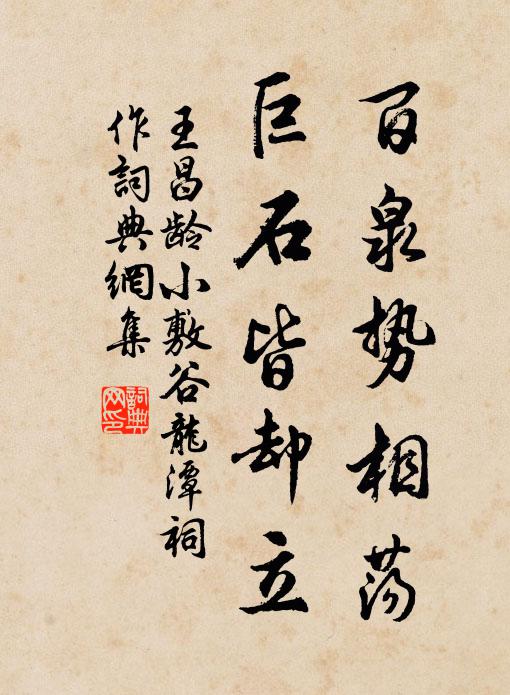 百泉势相荡
巨石皆却立
王昌龄小敷谷龍潭祠
作詞典網集
詞典
网印